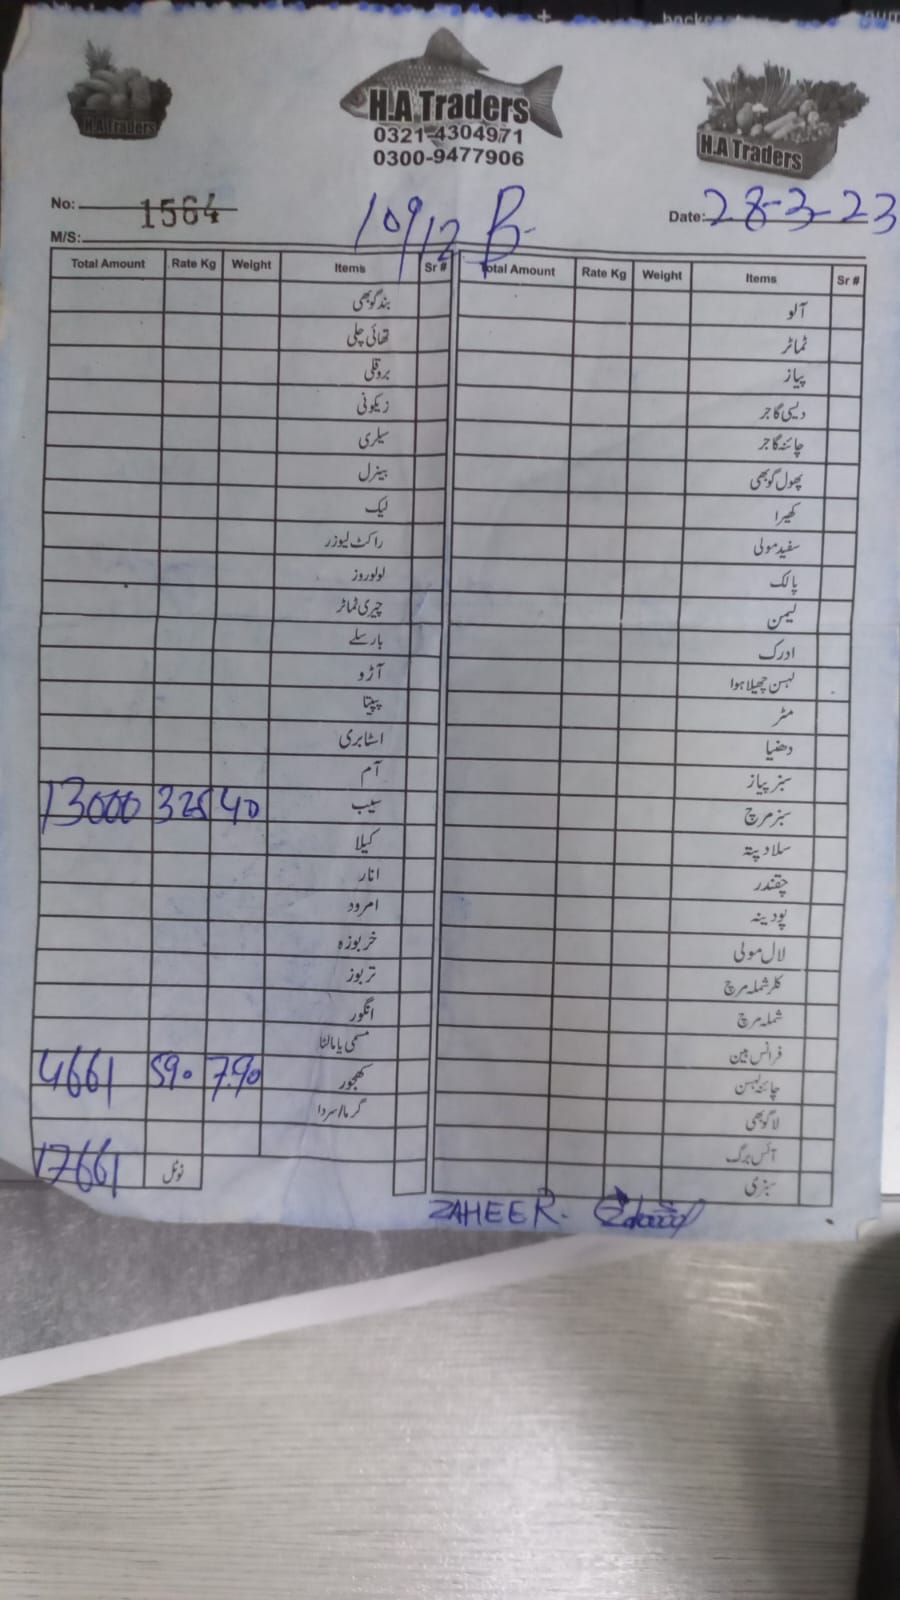 H.A Traders
H.A Traders
0321-4304971
0300-9477906
H.A Traders
No: 1564
10/12 B-
Date: 28-3-23
M/S:
Total Amount Rate Kg Weight Items Sr #
بند گوبھی
تھائی چلی
بروقلی
زیکونی
سیلری
بیزل
لیک
راکٹ لیوزر
لولوروز
چیری ٹماٹر
پارسلے
آڑو
پپیتا
اسٹابری
آم
13000 325 40 سیب
کیلا
انار
امرود
خربوزہ
تربوز
انگور
مسمی یا مالٹا
4661 590 7.90 کھجور
گرما/سردا
17661 ٹوٹل
Total Amount Rate Kg Weight Items Sr #
آلو
ٹماٹر
پیاز
دیسی گاجر
چائنہ گاجر
پھول گوبھی
کھیرا
سفید مولی
پالک
لیمن
ادرک
لہسن چھیلا ہوا
مٹر
دھنیا
سبز پیاز
سبز مرچ
سلاد پتہ
چقندر
پودینہ
لال مولی
کلر شملہ مرچ
شملہ مرچ
فرانس بین
چائنہ لہسن
لا گوبھی
آئس برگ
سبزی
ZAHEER.